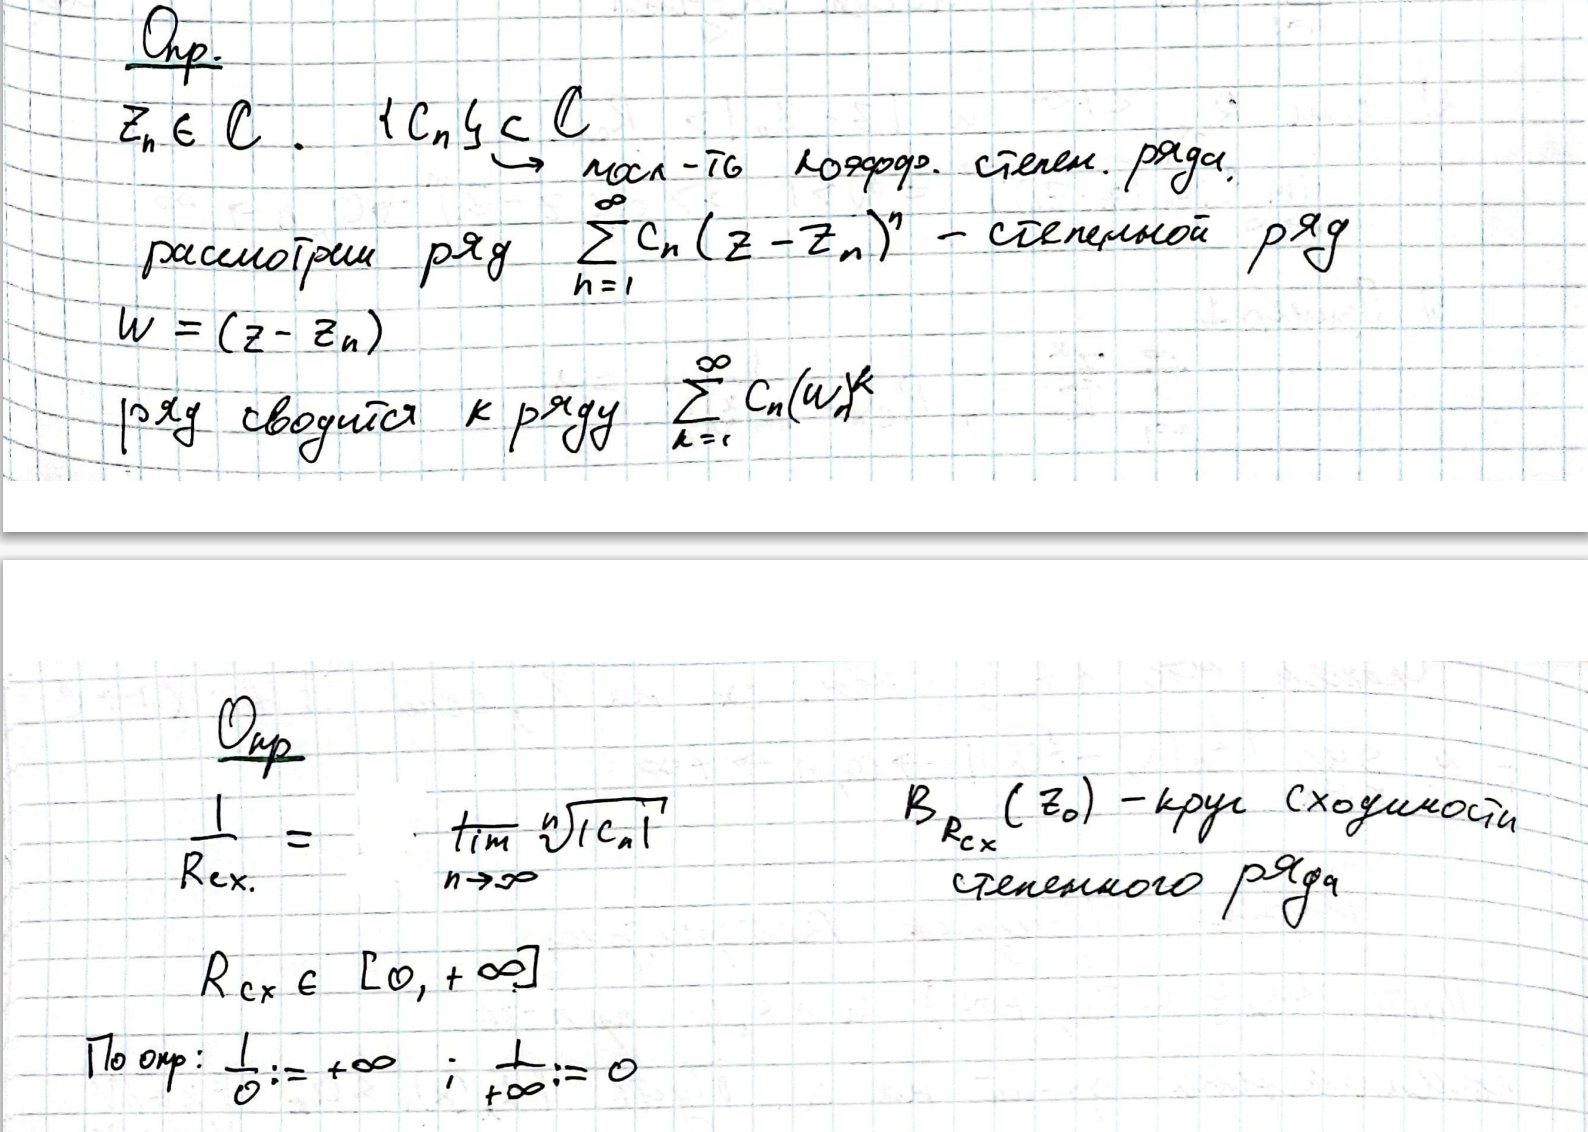 Опр.
Zₙ ∈ ℂ . {Cₙ} ⊂ ℂ
↳ посл-ть коэфф. степен. ряда.
рассмотрим ряд ∑_{n=1}^{∞} Cₙ(z - Zₙ)ⁿ - степенной ряд
W = (z - zₙ)
ряд сводится к ряду ∑_{k=1}^{∞} Cₙ(Wₙ)ᵏ
Опр
1/Rсх. = l̅i̅m̅_{n→∞} ⁿ√|Cₙ|
B_{Rсх}(Z₀) - круг сходимости
степенного ряда
Rсх ∈ [0, +∞]
По опр: 1/0 := +∞ ; 1/+∞ := 0